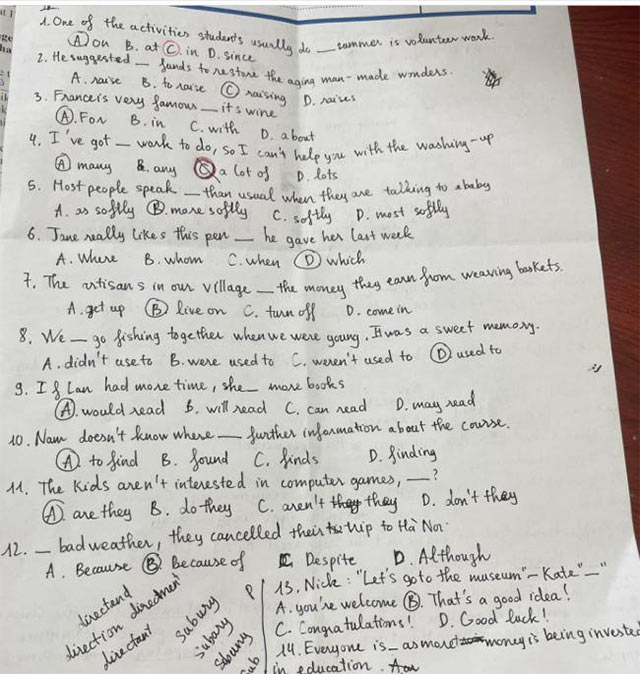 1. One of the activities students usually do __ summer is volunteer work.
A. on B. at C. in D. since
2. He suggested __ funds to restore the aging man-made wonders.
A. raise B. to raise C raising D. raises
3. France is very famous __ its wine
A. For B. in C. with D. about
4. I've got __ work to do, so I can't help you with the washing-up
A many B. any C a lot of D. lots
5. Most people speak __ than usual when they are talking to a baby
A. as softly B. more softly C. softly D. most softly
6. Jane really likes this pen __ he gave her last week
A. Where B. whom C. when D which
7. The artisans in our village __ the money they earn from weaving baskets.
A. get up B live on C. turn off D. come in
8. We __ go fishing together when we were young. It was a sweet memory.
A. didn't use to B. were used to C. weren't used to D used to
9. If Lan had more time, she __ more books
A. would read B. will read C. can read D. may read
10. Nam doesn't know where __ further information about the course.
A to find B. found C. finds D. finding
11. The kids aren't interested in computer games, __?
A are they B. do they C. aren't they D. don't they
12. __ bad weather, they cancelled their trip to Hà Nội.
A. Because B. Because of C Despite D. Although
directend
direction directment
directant
subury
subary
sbuny
sub
P
13. Nick: "Let's go to the museum" - Kate "__"
A. you're welcome B. That's a good idea!
C. Congratulations! D. Good luck!
14. Everyone is __ as more money is being invested
in education.